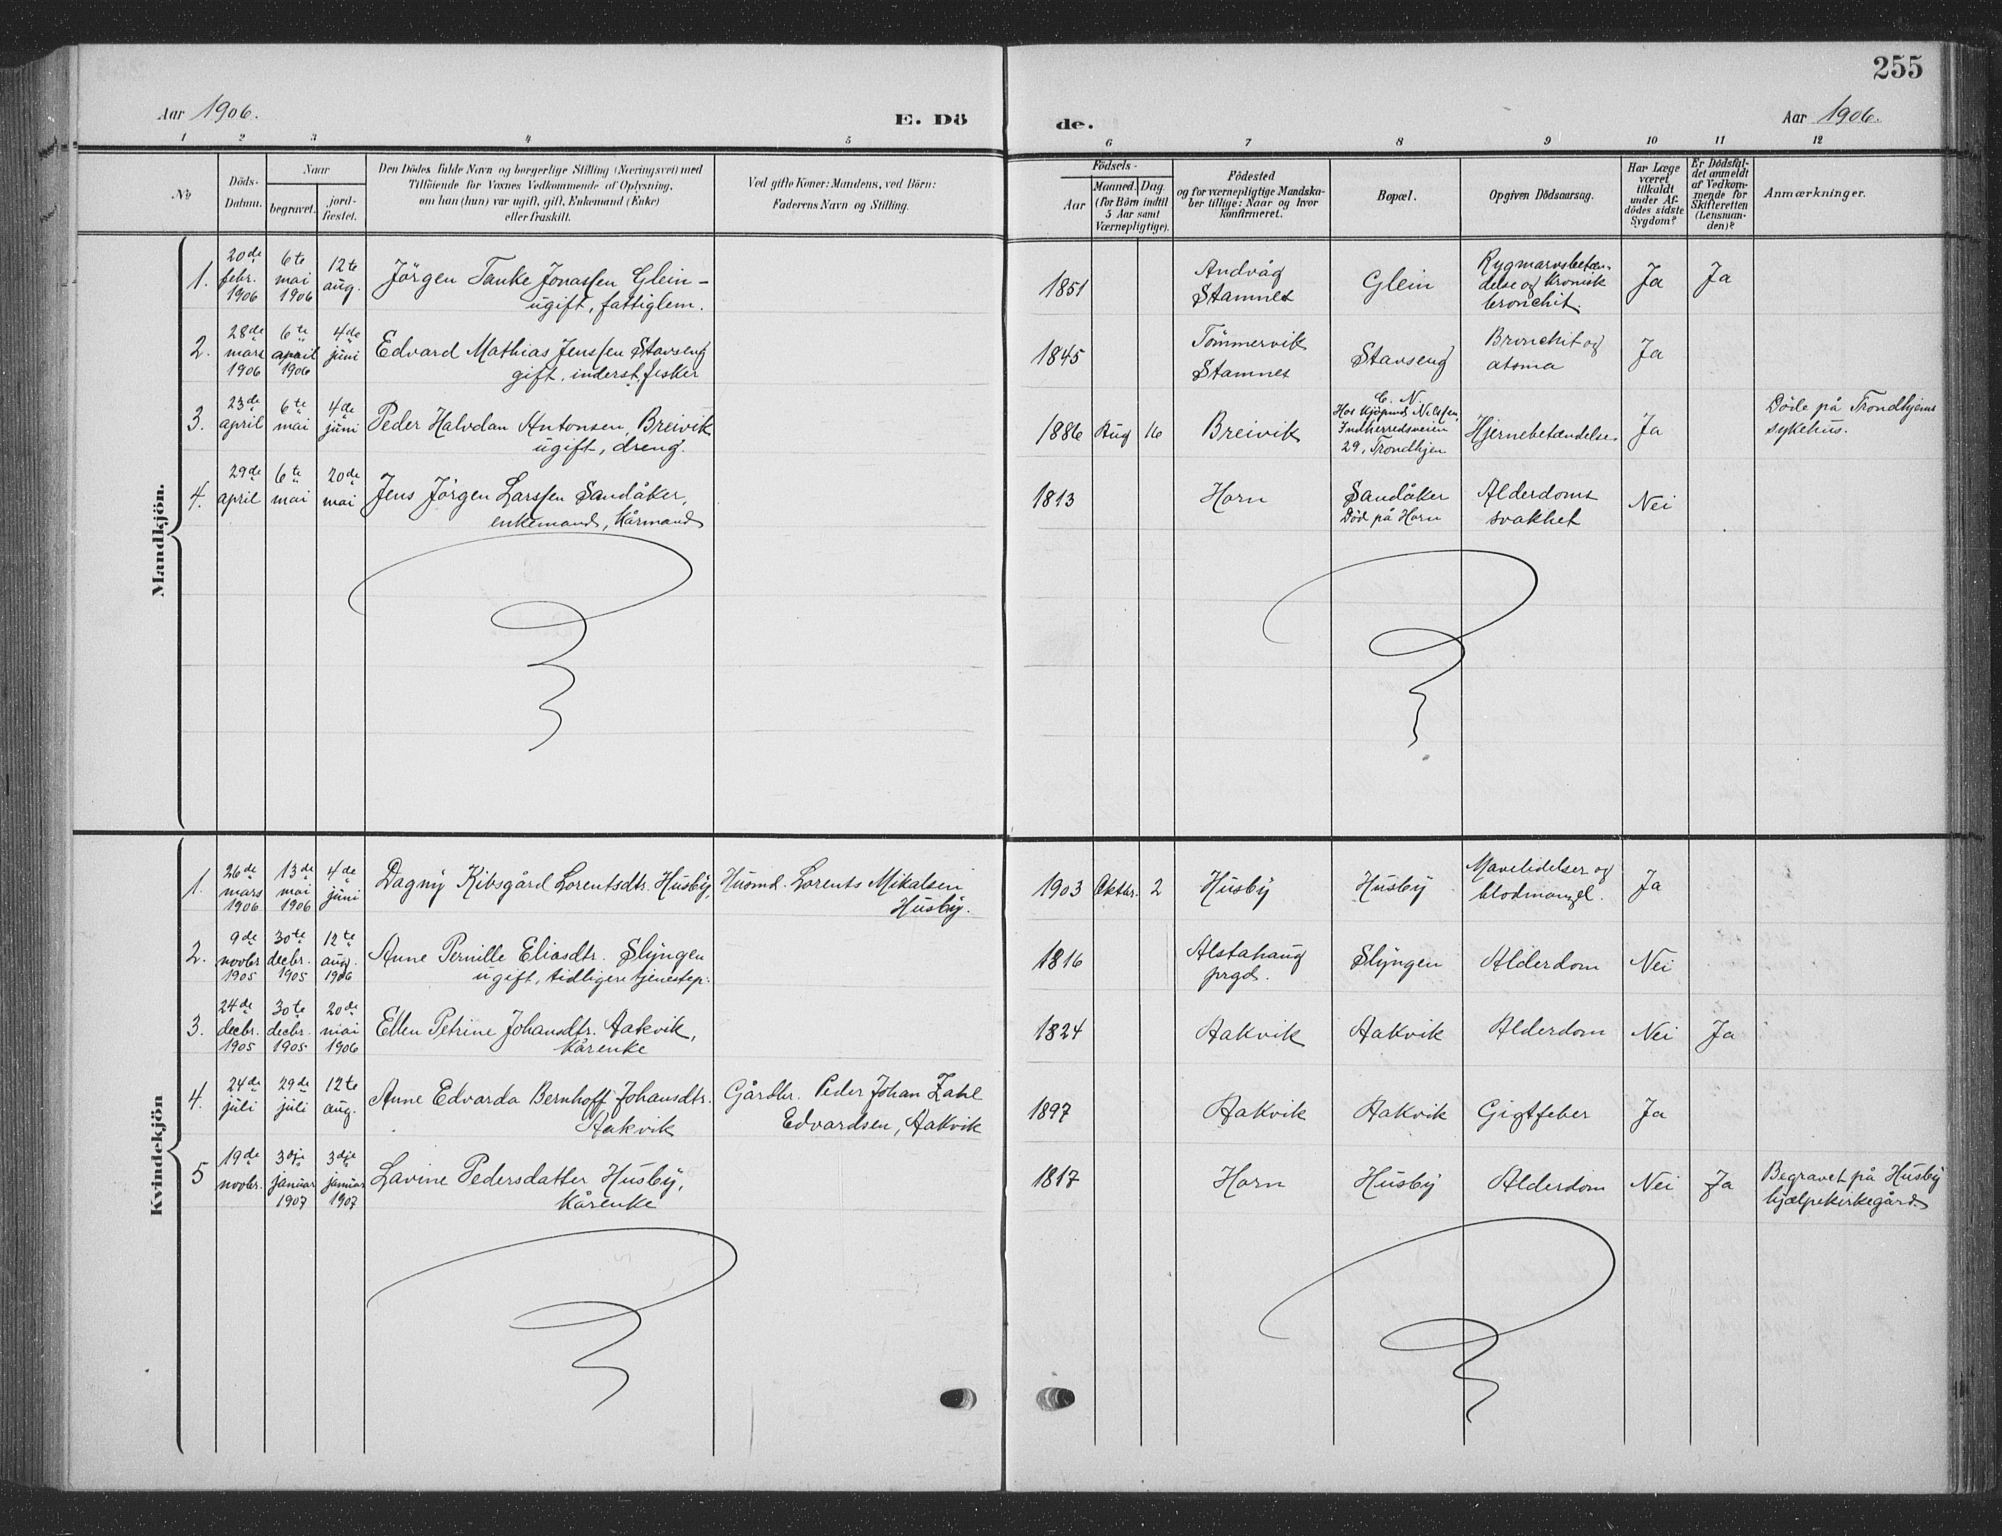 255
Aar 1906.
E. Dö
de.
Aar 1906.
1 2 3 4 5
6 7 8 9 10 11 12
No
Döds-
Datum.
Naar
begravet.
jord-
fæstet.
Den Dödes fulde Navn og borgerlige Stilling (Næringsvei) med
Tilföiende for Voxnes Vedkommende af Oplysning,
om han (hun) var ugift, gift, Enkemand (Enke)
eller fraskilt.
Ved gifte Koner: Mandens, ved Börn:
Faderens Navn og Stilling.
Födsels-
Aar
Maaned. Dag.
(for Börn indtil
5 Aar samt
Værnepligtige).
Födested
og for værnepligtige Mandska-
ber tillige: Naar og hvor
konfirmeret.
Bopæl.
Opgiven Dödsaarsag.
Har Læge
været
tilkaldt
under Af-
dödes sidste
Sygdom?
Er Dödsfal-
det anmeldt
af Vedkom-
mende for
Skifteretten
(Lensman-
den)?
Anmærkninger.
Mandkjön.
1.
20de
febr.
1906
6te
mai
1906
12te
aug.
Jörgen Tanke Jonassen Glein -
ugift, fattiglem.
1851
Andvåg
Stamnes
Glein
Rygmarvsbetæn-
delse og kronisk
bronchit.
Ja
Ja
2.
28de
mars
1906
6te
april
1906
4de
juni
Edvard Mathias Jenssen Stavseng
gift, inderst, fisker
1845
Tömmervik
Stamnes
Stavseng
Bronchit og
atsma
Ja
3.
23de
april
6te
mai
4de
juni
Peder Halvdan Antonsen, Breivik
ugift, dreng.
1886 Aug 16
Breivik
C. N.
Hos Kjöpmd. Nilssen,
Indherredsveien
29, Trondhjen
Hjernebetændelse
Ja
Döde på Trondhjems
sykehus.
4.
29de
april
6te
mai
20de
mai
Jens Jörgen Larssen Sandåker,
enkemand, Kårmand
1813
Horn
Sandåker
Död på Horn
Alderdoms
svakhet
Nei
Kvindekjön
1.
26de
mars
1906
13de
mai
1906
4de
juni
Dagny Kibsgård Lorentsdtr. Husby,
Husmd. Lorents Mikalsen
Husby.
1903 Oktbr. 2
Husby
Husby
Mavelidelser og
blodmangel.
Ja
2.
9de
novbr
1905
30te
decbr.
1905
12te
aug.
1906
Anne Pernille Eliasdtr. Slyngen
ugift, tidligere tjenestep.
1816
Alstahaug
prgd.
Slyngen
Alderdom
Nei
3.
24de
decbr.
1905
30te
decbr.
1905
20de
mai
1906
Ellen Petrine Johansdtr. Aakvik,
Kårenke
1824
Aakvik
Aakvik
Alderdom
Nei
Ja
4.
24de
juli
29de
juli
12te
aug.
Anne Edvarda Bernhoff Johansdtr.
Aakvik
Gårdbr. Peder Johan Zahl
Edvardsen, Aakvik
1897
Aakvik
Aakvik
Gigtfeber
Ja
5
19de
novbr.
3dje
januar
1907
3dje
januar
1907
Lavine Pedersdatter Husby,
Kårenke
1817
Horn
Husby
Alderdom
Nei
Ja
Begravet på Husby
hjælpekirkegård